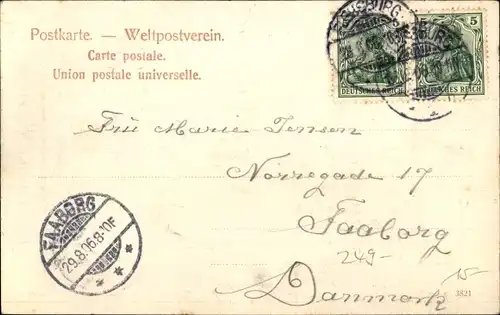 Postkarte. — Weltpostverein.
Carte postale.
Union postale universelle.
5
DEUTSCHES REICH
DEUTSCHES REICH
Frü Marie Jensen
Norregade 17
Faaborg
249-
Danmark
15-
3821
FAABORG
29.8.06.8-10F